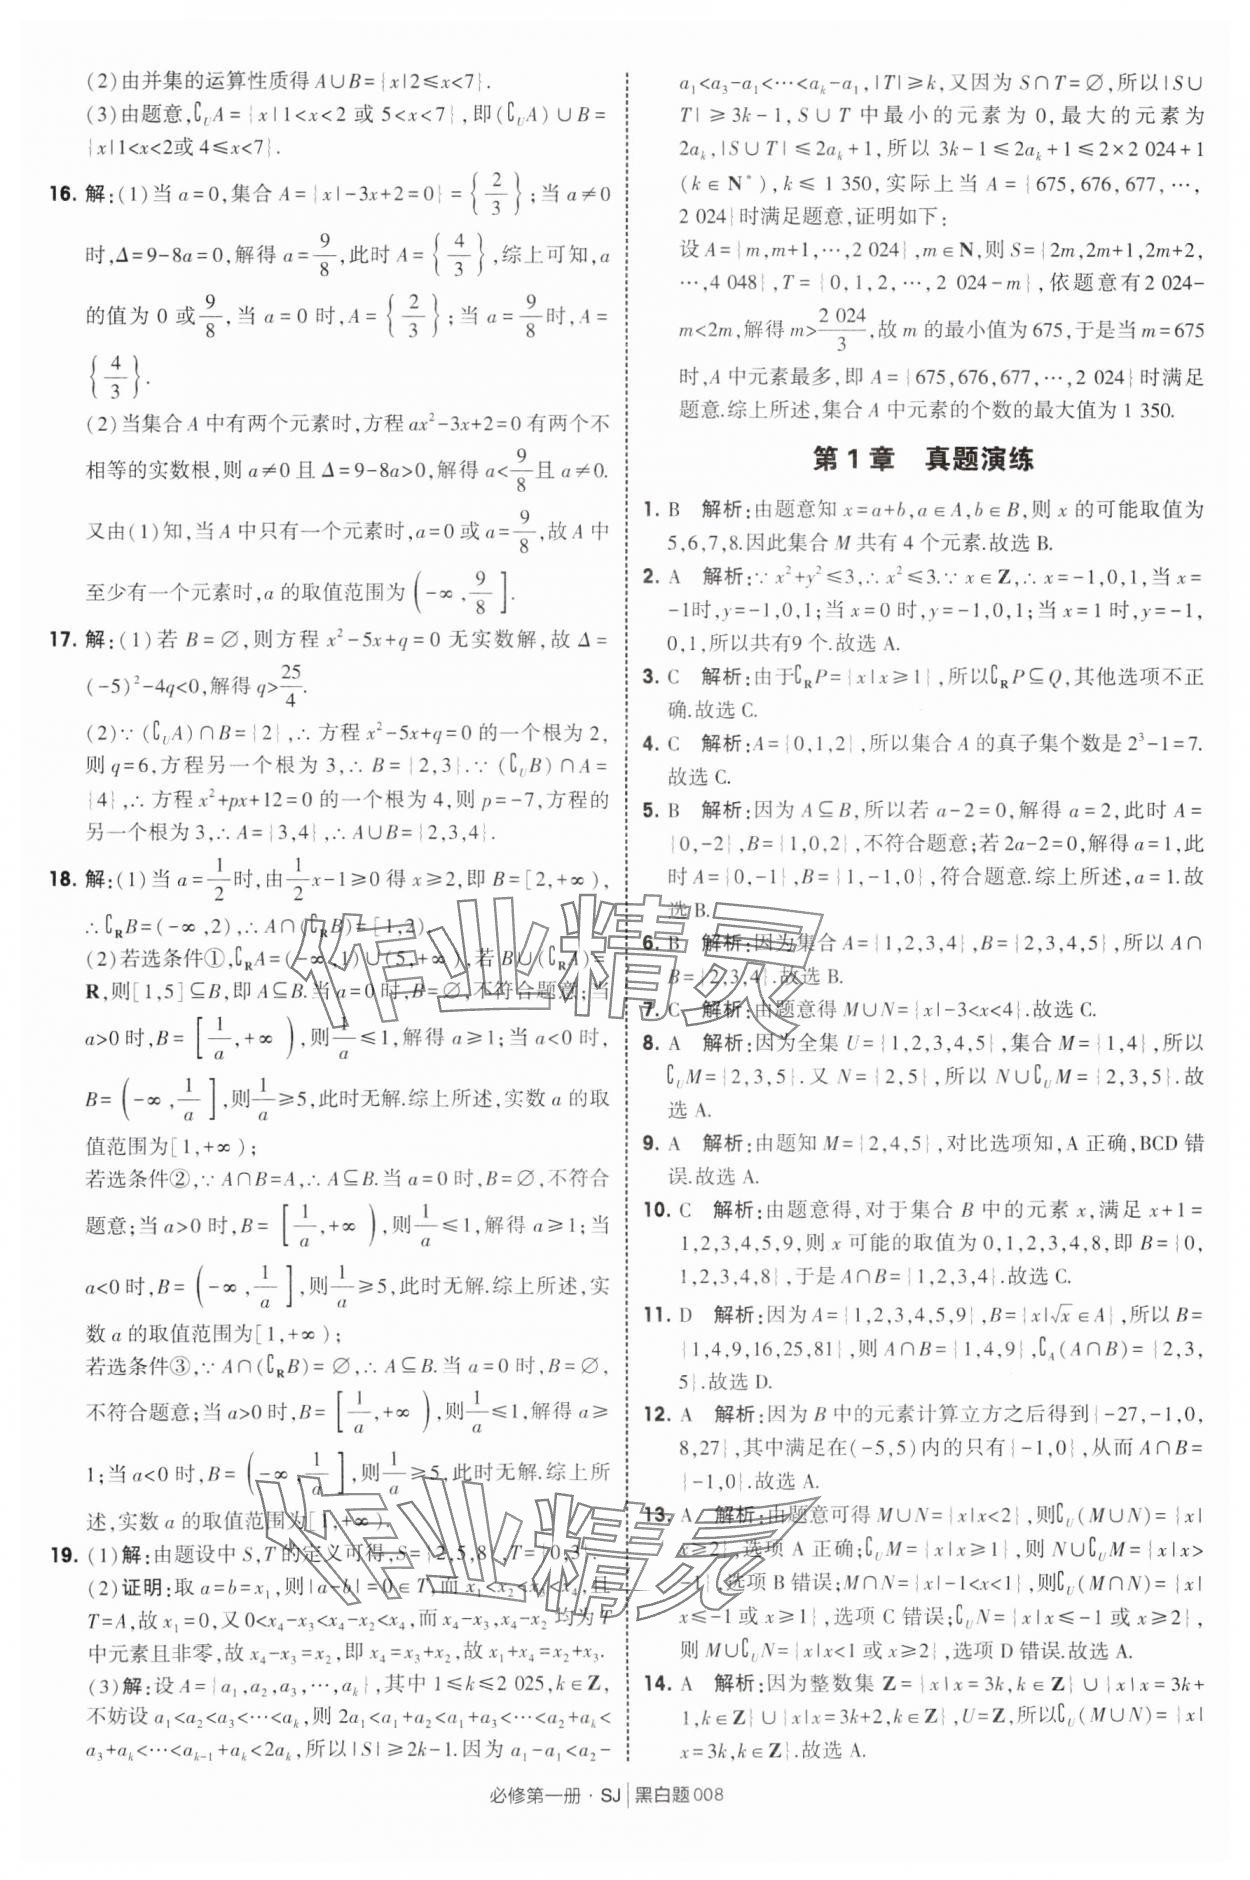 (2)由并集的运算性质得 A∪B={x|2≤x<7}.
(3)由题意,∁_U A={x|1<x<2 或 5<x<7},即(∁_U A)∪B=
{x|1<x<2或 4≤x<7}.
16. 解:(1)当 a=0,集合 A={x|-3x+2=0}={2/3};当 a≠0
时,Δ=9-8a=0,解得 a=9/8,此时 A={4/3},综上可知,a
的值为 0 或9/8,当 a=0 时,A={2/3};当 a=9/8时,A=
{4/3}.
(2)当集合 A 中有两个元素时,方程 ax²-3x+2=0 有两个不
相等的实数根,则 a≠0 且 Δ=9-8a>0,解得 a<9/8且 a≠0.
又由(1)知,当 A 中只有一个元素时,a=0 或 a=9/8,故 A 中
至少有一个元素时,a 的取值范围为(-∞,9/8].
17. 解:(1)若 B=∅,则方程 x²-5x+q=0 无实数解,故 Δ=
(-5)²-4q<0,解得 q>25/4.
(2)∵(∁_U A)∩B={2},∴方程 x²-5x+q=0 的一个根为 2,
则 q=6,方程另一个根为 3,∴B={2,3}.∵(∁_U B)∩A=
{4},∴方程 x²+px+12=0 的一个根为 4,则 p=-7,方程的
另一个根为 3,∴A={3,4},∴A∪B={2,3,4}.
18. 解:(1)当 a=1/2时,由1/2x-1≥0 得 x≥2,即 B=[2,+∞),
∴∁_R B=(-∞,2),∴A∩(∁_R B)=[1,2).
(2)若选条件①,∁_R A=(-∞,1)∪(5,+∞),若 B∪(∁_R A)=
R,则[1,5]⊆B,即 A⊆B.当 a=0 时,B=∅,不符合题意;当
a>0 时,B=[1/a,+∞),则1/a≤1,解得 a≥1;当 a<0 时,
B=(-∞,1/a],则1/a≥5,此时无解.综上所述,实数 a 的取
值范围为[1,+∞);
若选条件②,∵A∩B=A,∴A⊆B.当 a=0 时,B=∅,不符合
题意;当 a>0 时,B=[1/a,+∞),则1/a≤1,解得 a≥1;当
a<0 时,B=(-∞,1/a],则1/a≥5,此时无解.综上所述,实
数 a 的取值范围为[1,+∞);
若选条件③,∵A∩(∁_R B)=∅,∴A⊆B.当 a=0 时,B=∅,
不符合题意;当 a>0 时,B=[1/a,+∞),则1/a≤1,解得 a≥
1;当 a<0 时,B=(-∞,1/a],则1/a≥5,此时无解.综上所
述,实数 a 的取值范围为[1,+∞).
19. (1)解:由题设中 S,T 的定义可得,S={2,5,8},T={0,3}.
(2)证明:取 a=b=x₁,则|a-b|=0∈T,而 x₁<x₂<x₃<x₄,且
T=A,故 x₁=0,又 0<x₄-x₃<x₄-x₂<x₄,而 x₄-x₃,x₄-x₂ 均为 T
中元素且非零,故 x₄-x₃=x₂,即 x₄=x₃+x₂,故 x₁+x₄=x₂+x₃.
(3)解:设 A={a₁,a₂,a₃,⋯,a_k},其中 1≤k≤2 025,k∈Z,
不妨设 a₁<a₂<a₃<⋯<a_k,则 2a₁<a₁+a₂<a₁+a₃<⋯<a₂+a_k<
a₃+a_k<⋯<a_{k-1}+a_k<2a_k,所以|S|≥2k-1.因为 a₁-a₁<a₂-
a₁<a₃-a₁<⋯<a_k-a₁,|T|≥k,又因为 S∩T=∅,所以|S∪
T|≥3k-1,S∪T 中最小的元素为 0,最大的元素为
2a_k,|S∪T|≤2a_k+1,所以 3k-1≤2a_k+1≤2×2 024+1
(k∈N*),k≤1 350,实际上当 A={675,676,677,⋯,
2 024}时满足题意,证明如下:
设 A={m,m+1,⋯,2 024},m∈N,则 S={2m,2m+1,2m+2,
⋯,4 048},T={0,1,2,⋯,2 024-m},依题意有2 024-
m<2m,解得 m>2 024/3,故 m 的最小值为 675,于是当 m=675
时,A 中元素最多,即 A={675,676,677,⋯,2 024}时满足
题意.综上所述,集合 A 中元素的个数的最大值为 1 350.
第 1 章 真题演练
1. B 解析:由题意知 x=a+b,a∈A,b∈B,则 x 的可能取值为
5,6,7,8.因此集合 M 共有 4 个元素.故选 B.
2. A 解析:∵x²+y²≤3,∴x²≤3.∵x∈Z,∴x=-1,0,1,当 x=
-1时,y=-1,0,1;当 x=0 时,y=-1,0,1;当 x=1 时,y=-1,
0,1,所以共有9 个.故选 A.
3. C 解析:由于∁_R P={x|x≥1},所以∁_R P⊆Q,其他选项不正
确.故选 C.
4. C 解析:A={0,1,2},所以集合 A 的真子集个数是 2³-1=7.
故选 C.
5. B 解析:因为 A⊆B,所以若 a-2=0,解得 a=2,此时 A=
{0,-2},B={1,0,2},不符合题意;若 2a-2=0,解得 a=1,此
时 A={0,-1},B={1,-1,0},符合题意.综上所述,a=1.故
选 B.
6. B 解析:因为集合 A={1,2,3,4},B={2,3,4,5},所以 A∩
B={2,3,4}.故选 B.
7. C 解析:由题意得 M∪N={x|-3<x<4}.故选 C.
8. A 解析:因为全集 U={1,2,3,4,5},集合 M={1,4},所以
∁_U M={2,3,5}.又 N={2,5},所以 N∪∁_U M={2,3,5}.故
选 A.
9. A 解析:由题知 M={2,4,5},对比选项知,A 正确,BCD 错
误.故选 A.
10. C 解析:由题意得,对于集合 B 中的元素 x,满足 x+1=
1,2,3,4,5,9,则 x 可能的取值为 0,1,2,3,4,8,即 B={0,
1,2,3,4,8},于是 A∩B={1,2,3,4}.故选 C.
11. D 解析:因为 A={1,2,3,4,5,9},B={x|√x∈A},所以 B=
{1,4,9,16,25,81},则 A∩B={1,4,9},∁_A(A∩B)={2,3,
5}.故选 D.
12. A 解析:因为 B 中的元素计算立方之后得到{-27,-1,0,
8,27},其中满足在(-5,5)内的只有{-1,0},从而 A∩B=
{-1,0}.故选 A.
13. A 解析:由题意可得 M∪N={x|x<2},则∁_U(M∪N)={x|
x≥2},选项 A 正确;∁_U M={x|x≥1},则 N∪∁_U M={x|x>
-1},选项 B错误;M∩N={x|-1<x<1},则∁_U(M∩N)={x|
x≤-1 或 x≥1},选项 C 错误;∁_U N={x|x≤-1 或 x≥2},
则 M∪∁_U N={x|x<1 或 x≥2},选项 D 错误.故选 A.
14. A 解析:因为整数集 Z={x|x=3k,k∈Z}∪{x|x=3k+
1,k∈Z}∪{x|x=3k+2,k∈Z},U=Z,所以∁_U(M∪N)={x|
x=3k,k∈Z}.故选 A.
必修第一册·SJ|黑白题008
作业精灵
作业精灵